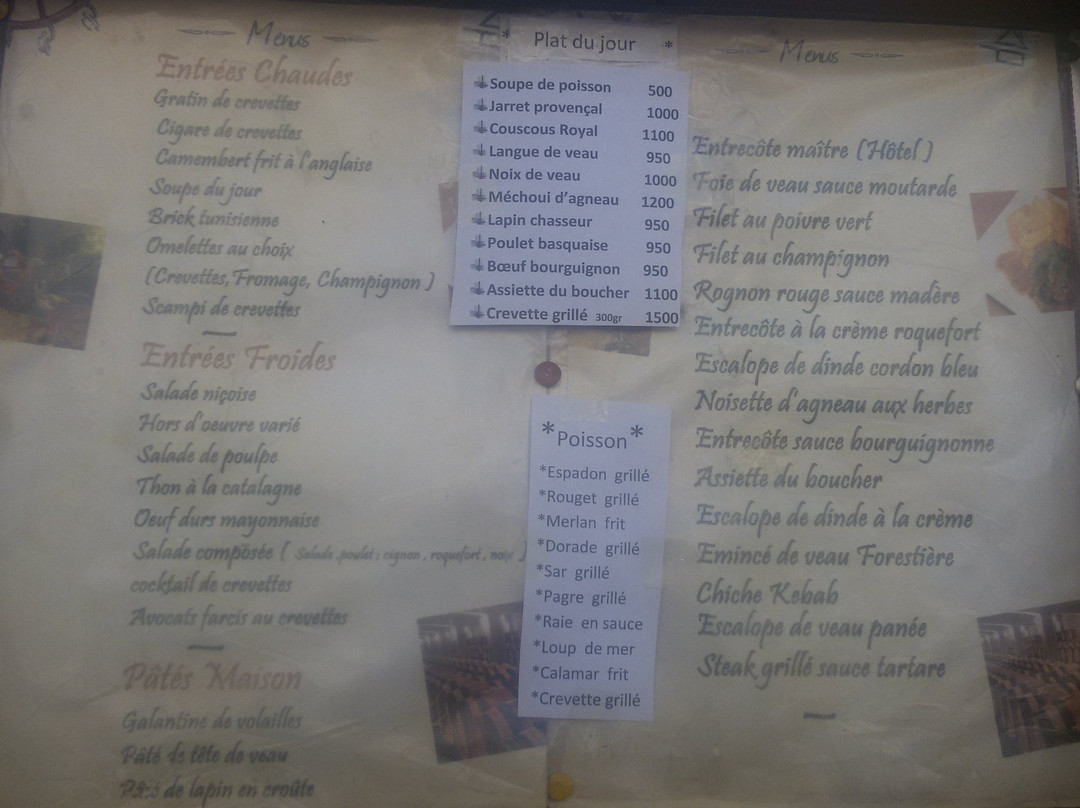 Menus
Entrées Chaudes
Gratin de crevettes
Cigare de crevettes
Camembert frit à l'anglaise
Soupe du jour
Brick tunisienne
Omelettes au choix
(Crevettes, Fromage, Champignon )
Scampi de crevettes
Entrées Froides
Salade niçoise
Hors d'oeuvre varié
Salade de poulpe
Thon à la catalagne
Oeuf durs mayonnaise
Salade composée ( Salade, poulet ; oignon , roquefort , noix )
cocktail de crevettes
Avocats farcis au crevettes
Pâtés Maison
Galantine de volailles
Pâté de tête de veau
de lapin en croûte
* Plat du jour *
Soupe de poisson 500
Jarret provençal 1000
Couscous Royal 1100
Langue de veau 950
Noix de veau 1000
Méchoui d'agneau 1200
Lapin chasseur 950
Poulet basquaise 950
Bœuf bourguignon 950
Assiette du boucher 1100
Crevette grillé 300gr 1500
*Poisson*
*Espadon grillé
*Rouget grillé
*Merlan frit
*Dorade grillé
*Sar grillé
*Pagre grillé
*Raie en sauce
*Loup de mer
*Calamar frit
*Crevette grillé
Menus
Entrecôte maître (Hôtel )
Foie de veau sauce moutarde
Filet au poivre vert
Filet au champignon
Rognon rouge sauce madère
Entrecôte à la crème roquefort
Escalope de dinde cordon bleu
Noisette d'agneau aux herbes
Entrecôte sauce bourguignonne
Assiette du boucher
Escalope de dinde à la crème
Emincé de veau Forestière
Chiche Kebab
Escalope de veau panée
Steak grillé sauce tartare